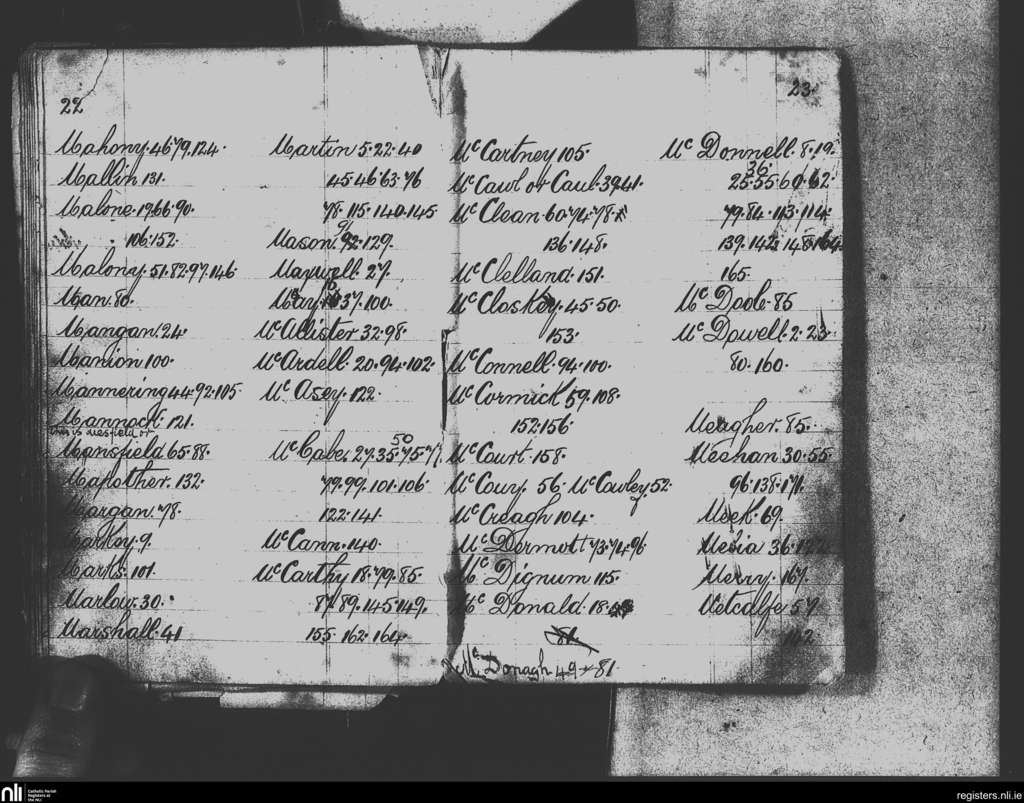 22
Mahony. 46. 79. 124.
Mallin 131.
Malone. 19. 66. 90.
106. 152.
Malony. 51. 82. 97. 146
Man. 80.
Mangan. 24.
Manion 100.
Mannering 44. 92. 105.
Mannock. 121.
Mansfield 65. 88.
Mapother. 132.
Margan. 78.
Markoy. 9.
Marks. 101.
Marlow. 30.
Marshall. 41
Martin 5. 22. 40
45. 46. 63. 76
78. 115. 140. 145
Mason. 92. 129.
Maxwell. 27.
May 37. 100.
McAllister 32. 98.
McArdell. 20. 94. 102.
McAsey. 122.
50
McCabe. 27. 35. 75.
79. 99. 101. 106.
122. 141.
McCann. 140.
McCarthy 18. 79. 85.
87. 89. 145. 149.
155. 162. 164.
23.
McCartney 105.
McCawl or Caul. 39. 41.
McClean 60. 74. 78.
136. 148.
McClelland. 151.
McCloskey. 45. 50.
153.
McConnell. 94. 100.
McCormick 59. 108.
152. 156.
McCourt. 158.
McCouy. 56. McCowley 52.
McCreagh 104.
McDermott 73. 74. 96
McDignum 115.
McDonald. 18.
81.
McDonagh 49 81
McDonnell. 8. 19.
36.
25. 55. 60. 62.
79. 84. 113. 114.
139. 142. 148. 164
165.
McDoole. 85
McDowell. 2. 23.
80. 160.
Meagher. 85.
Meehan. 30. 55.
96. 138. 171.
Meek. 69.
Mesia 36.
Merry. 167.
Metcalfe 57
142.
nli Catholic Parish Registers at the NLI
registers.nli.ie